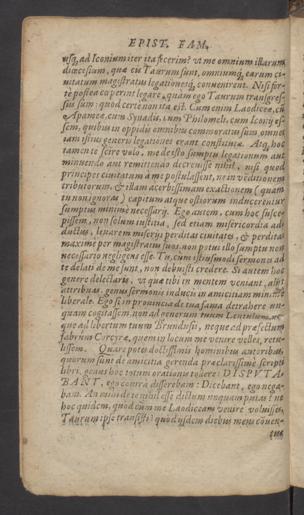 EPIST. FAM.
usq, ad Iconium iter ita fecerim? ut me omnium illarum
diœcesium, quæ cis Taurum sunt, omniumq, earum ci-
uitatum magistratus legationesq, conuenirent. Nisi for-
te postea cœperint legare, quàm ego Taurum transgres-
sus sum: quod certè non ita est. Cum enim Laodiceæ, cũ
Apameæ, cum Synadis, cum Philomeli, cum Iconij es-
sem, quibus in oppidis omnibus commoratus sum, omnes
iam istius generis legationes erant constitutæ. Atq, hoc
tamen te scire volo, me de isto sumptu legationum aut
minuendo aut remittendo decreuisse nihil, nisi quod
principes ciuitatum à me postulassent, ne in venditionem
tributorum, & illam acerbissimam exactionem (quam
tu non ignoras) capitum atque ostiorum inducerentur
sumptus minimè necessarij. Ego autem, cum hoc susce-
pissem, non solum iustitia, sed etiam misericordia ad-
ductus, leuarem miserijs perditas ciuitates, & perditas
maximè per magistratus suos, non potui illo sumptu non
necessario negligens esse. Tu, cum istiusmodi sermones ad
te delati de me sunt, non debuisti credere. Si autem hoc
genere delectaris, ut quæ tibi in mentem veniant, alijs
attribuas, genus sermonis inducis in amicitiam minimè
liberale. Ego si in prouincia de tua fama detrahere un-
quam cogitassem, non ad generum tuum Lentulum, ne-
que ad libertum tuum Brundisij, neque ad præfectum
fabrum Corcyræ, quem in locum me venire velles, retu-
lissem. Quare potes doctissimis hominibus autoribus,
quorum sunt de amicitia gerenda præclarissimè scripti
libri, genus hoc totum orationis tollere: DISPVTA-
BANT, ego contrà disserebam: Dicebant, ego nega-
bam. An mihi de te nihil esse dictum unquam putas? ne
hoc quidem, quod cum me Laodiceam venire voluisses,
Taurum ipse transisti? quod ijsdem diebus meus conuen-